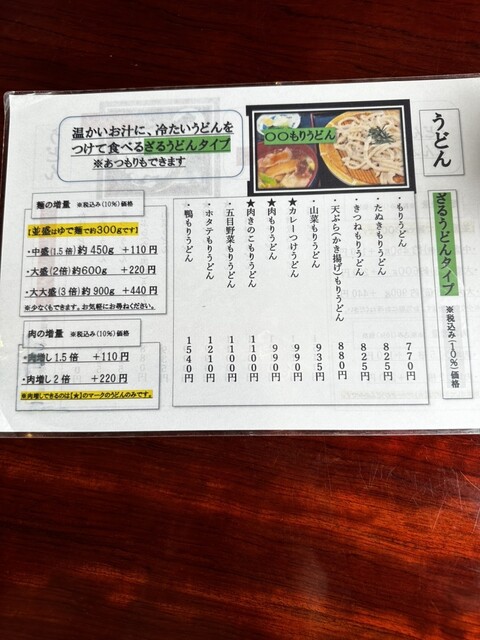 うどん
ざるうどんタイプ ※税込み(10%)価格
〇〇もりうどん
温かいお汁に、冷たいうどんを
つけて食べるざるうどんタイプ
※あつもりもできます
・もりうどん 770円
・たぬきもりうどん 825円
・きつねもりうどん 825円
・天ぷら(かき揚げ)もりうどん 880円
・山菜もりうどん 935円
★カレーつけうどん 990円
★肉もりうどん 990円
★肉きのこもりうどん 1100円
・五目野菜もりうどん 1100円
・ホタテもりうどん 1210円
・鴨もりうどん 1540円
麺の増量 ※税込み(10%)価格
【並盛はゆで麺で約300gです】
・中盛(1.5倍)約450g +110円
・大盛(2倍)約600g +220円
・大大盛(3倍)約900g +440円
※少なくもできます。お気軽にお尋ねください。
肉の増量 ※税込み(10%)価格
・肉増し1.5倍 +110円
・肉増し2倍 +220円
※肉増しできるのは【★】のマークのうどんのみです。